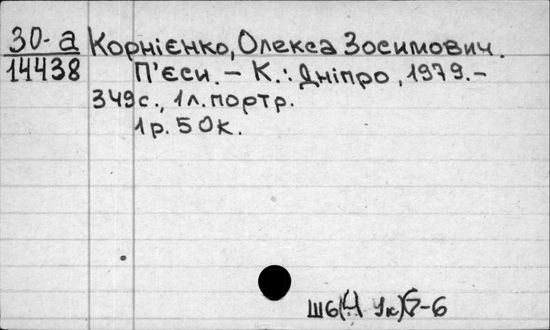 30-а Корнієнко, Олекса Зосимович.
14438 П'єси. – К.: Дніпро, 1979.–
349с., 1л. портр.
1р. 50к.
Ш6(4Ук)6-6